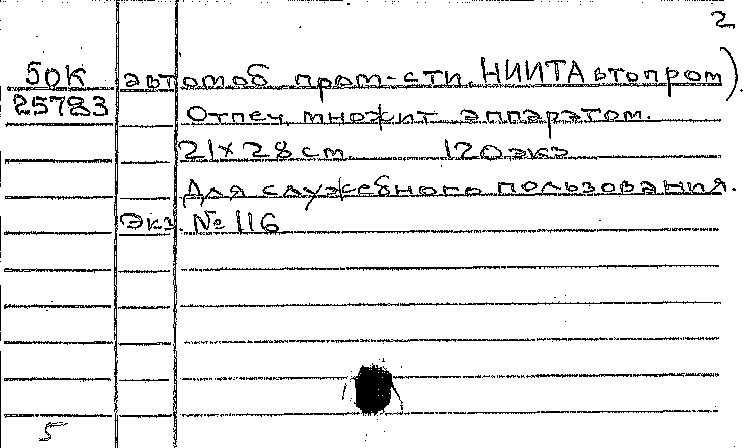 2
50К автомоб пром-сти. НИИТАвтопром).
25783 Отпеч. множит. аппаратом.
21×28 cm 120 экз
Для служебного пользования.
Экз. № 116
5